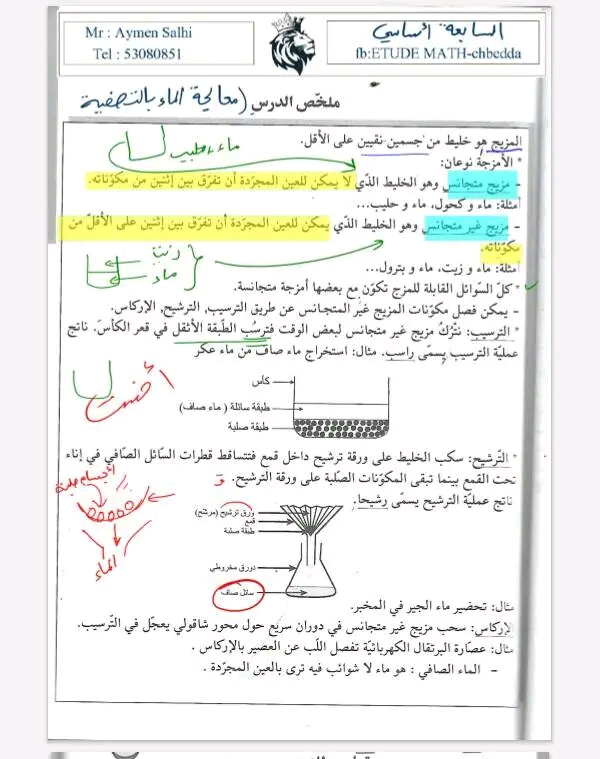 Mr : Aymen Salhi
Tel : 53080851
السابعة أساسي
fb:ETUDE MATH-chbedda
ملخّص الدرس (معالجة الماء بالتصفية
المزيج هو خليط من جسمين نقيين على الأقل.
ماء + حليب
* الأمزجة نوعان:
- مزيج متجانس وهو الخليط الذّي لا يمكن للعين المجرّدة أن تفرّق بين إثنين من مكوّناته.
أمثلة: ماء و كحول، ماء و حليب...
- مزيج غير متجانس وهو الخليط الذّي يمكن للعين المجرّدة أن تفرّق بين إثنين على الأقلّ من
مكوّناته.
زيت
ماء
أمثلة: ماء و زيت، ماء و بترول...
* كلّ السّوائل القابلة للمزج تكوّن مع بعضها أمزجة متجانسة.
- يمكن فصل مكوّنات المزيج غير المتجانس عن طريق الترسيب, الترشيح, الإركاس.
* الترسيب: نتْرُكُ مزيج غير متجانس لبعض الوقت فترسُب الطّبقة الأثقل في قعر الكأسّ. ناتج
عمليّة الترسيب يسمّى راسب. مثال: استخراج ماء صاف من ماء عكر
كأس
طبقة سائلة ( ماء صاف)
طبقة صلبة
* التّرشيح: سكب الخليط على ورقة ترشيح داخل قمع فتتساقط قطرات السّائل الصّافي في إناء
تحت القمع بينما تبقى المكوّنات الصّلبة على ورقة الترشيح.
ناتج عمليّة الترشيح يسمّى رشيحا.
أجسام صلبة
الماء
ورق ترشيح (مرشح)
قمع
طبقة صلبة
دورق مخروطي
سائل صاف
مثال: تحضير ماء الجير في المخبر.
الإركاس: سحب مزيج غير متجانس في دوران سريع حول محور شاقولي يعجّل في التّرسيب.
مثال: عصّارة البرتقال الكهربائيّة تفصل اللّب عن العصير بالإركاس .
- الماء الصافي : هو ماء لا شوائب فيه ترى بالعين المجرّدة .